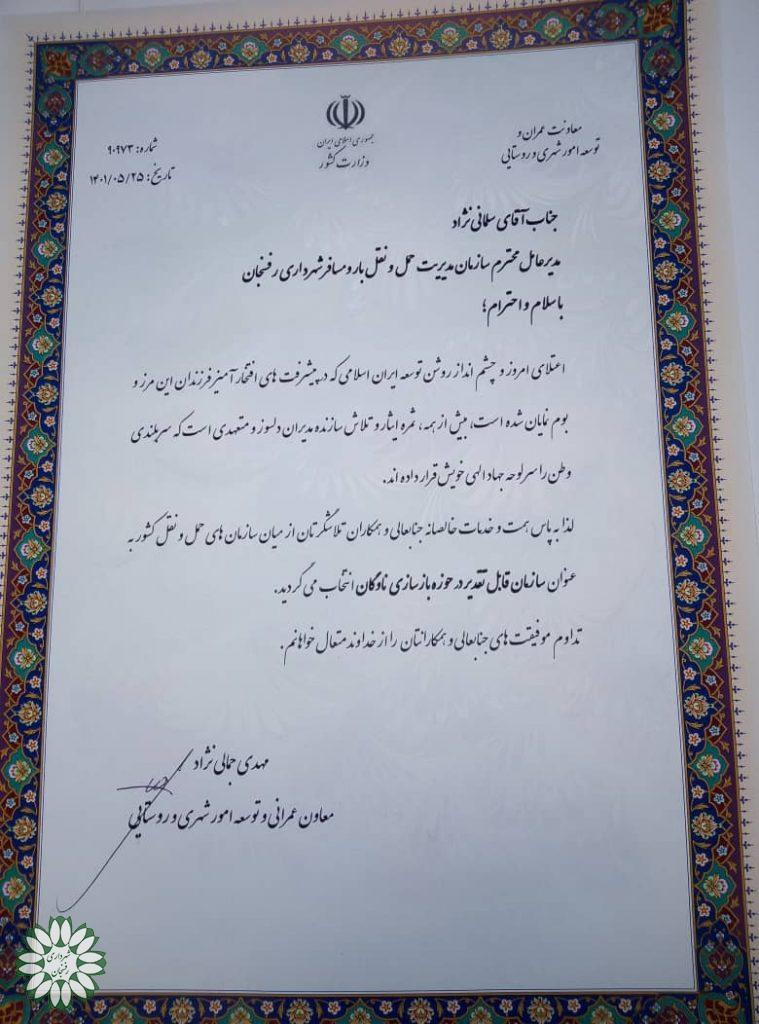 جمهوری اسلامی ایران
وزارت کشور
معاونت عمران و
توسعه امور شهری و روستایی
شماره: ۹۰۹۷۳
تاریخ: ۱۴۰۱/۰۵/۲۵
جناب آقای سلمانی نژاد
مدیرعامل محترم سازمان مدیریت حمل و نقل بار و مسافر شهرداری رفسنجان
با سلام و احترام؛
اعتلای امروز و چشم انداز روشن توسعه ایران اسلامی که در پیشرفت های افتخار آمیز فرزندان این مرز و
بوم نمایان شده است، بیش از همه، ثمره ایثار و تلاش سازنده مدیران دلسوز و متعهدی است که سربلندی
وطن را سرلوحه جهاد الهی خویش قرار داده اند.
لذا به پاس همت و خدمات خالصانه جنابعالی و همکاران تلاشگرتان از میان سازمان های حمل و نقل کشور به
عنوان سازمان قابل تقدیر در حوزه بازسازی ناوگان انتخاب می گردید.
تداوم موفقیت های جنابعالی و همکارانتان را از خداوند متعال خواهانم.
مهدی جمالی نژاد
معاون عمرانی و توسعه امور شهری و روستایی
شهرداری
رفسنجان